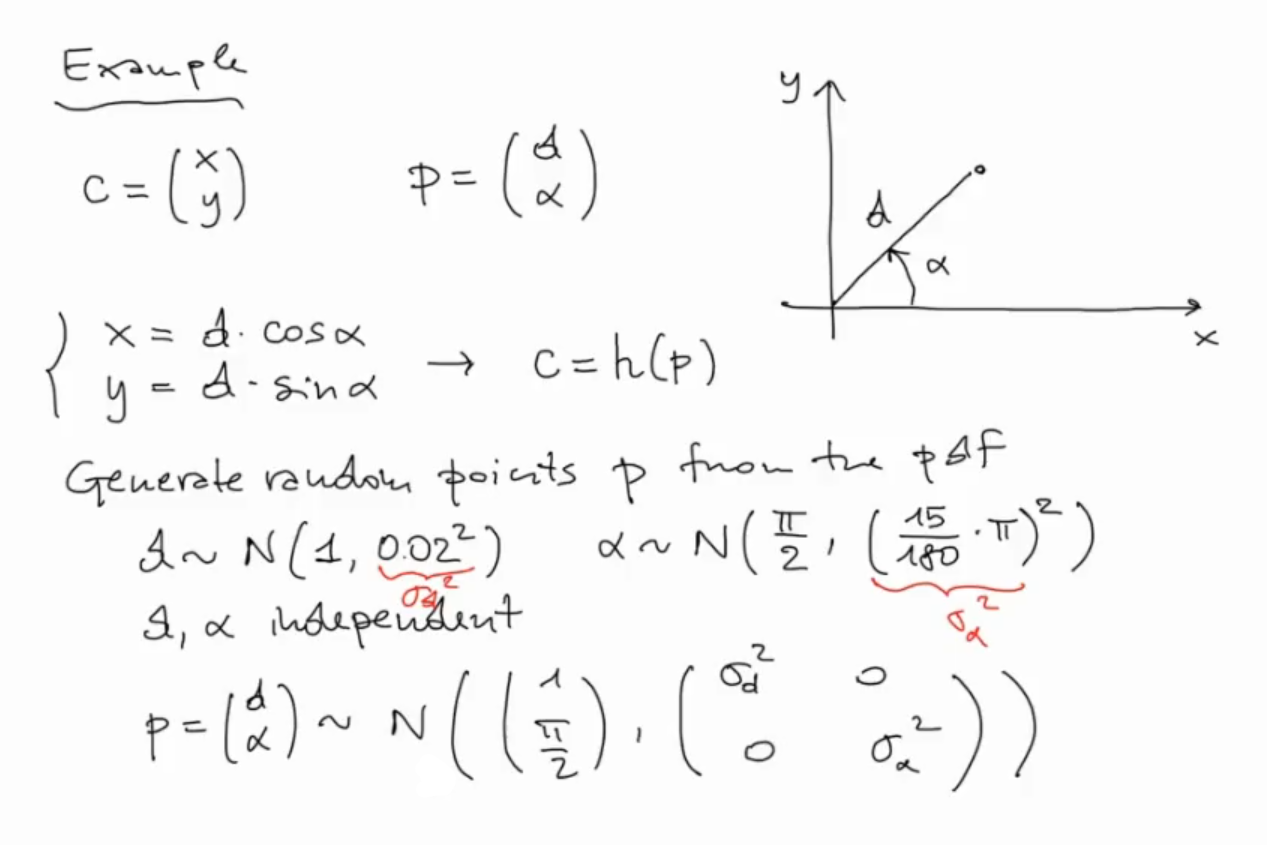 Example
c = (x y)   p = (d α)
y
d
α
x
{ x = d · cos α
y = d · sin α → c = h(p)
Generate random points p from the pdf
d ~ N(1, 0.02²)   α ~ N(π/2, (15/180 · π)²)
σd²   σα²
d, α independent
p = (d α) ~ N((1 π/2), (σd² 0 0 σα²))